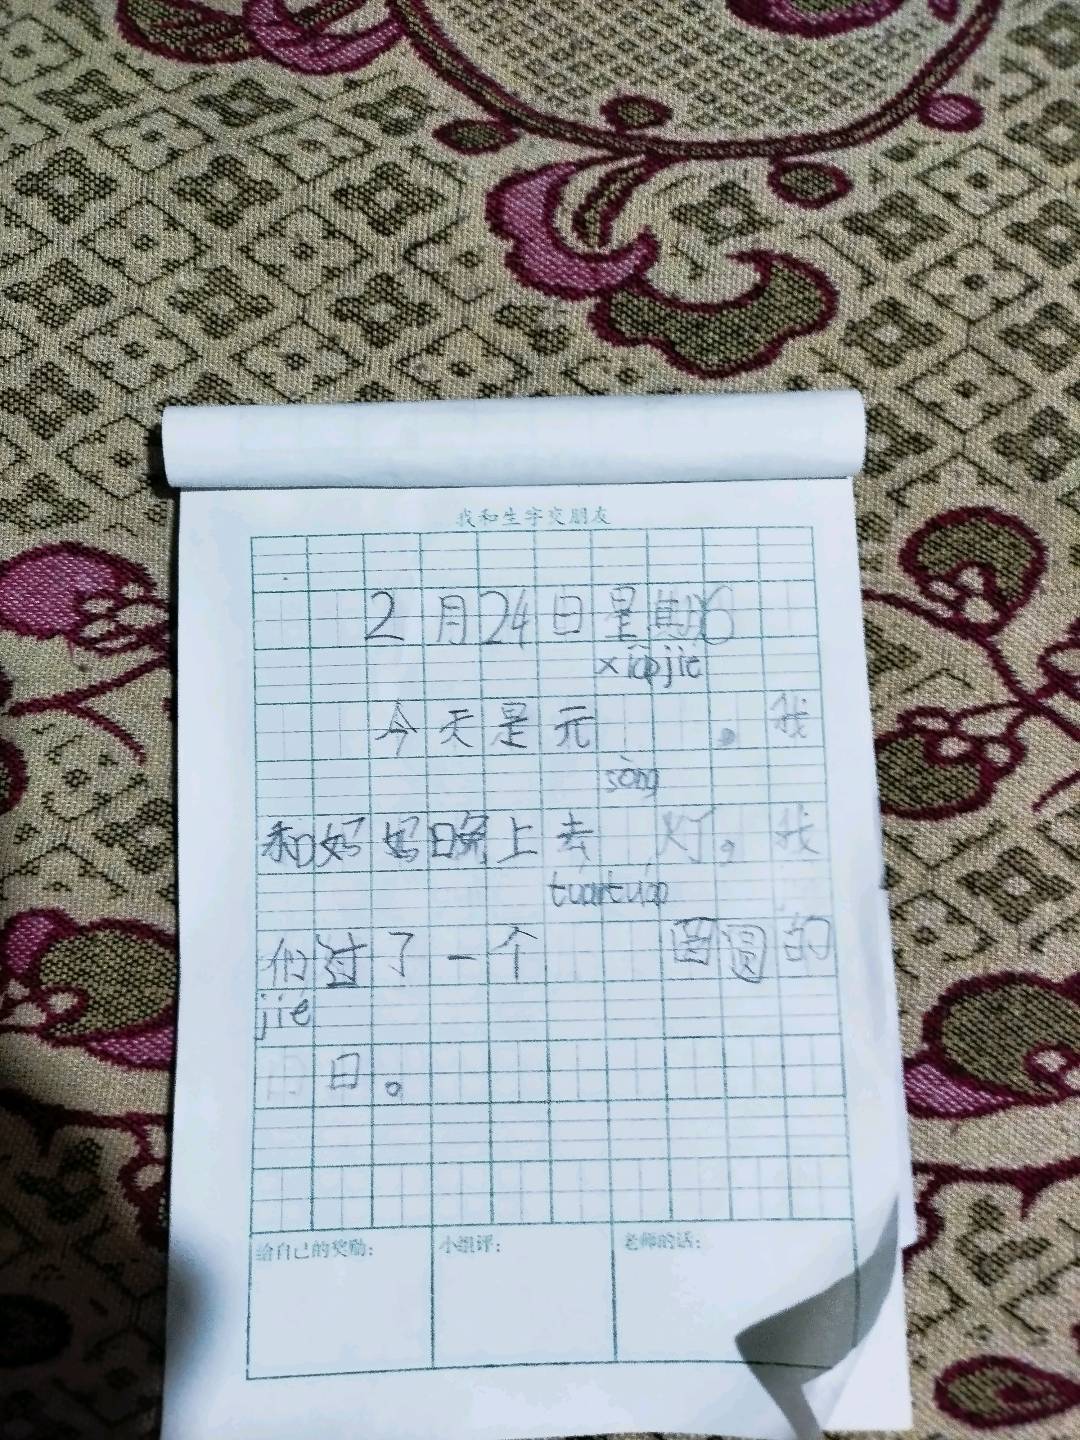 我和生字交朋友
2月24日星期6
xiāojié
今天是元。我
sòng
和妈妈晚上去灯，我
tuántuán
们过了一个团圆的
jié
日。
给自己的奖励：
小组评：
老师的话：